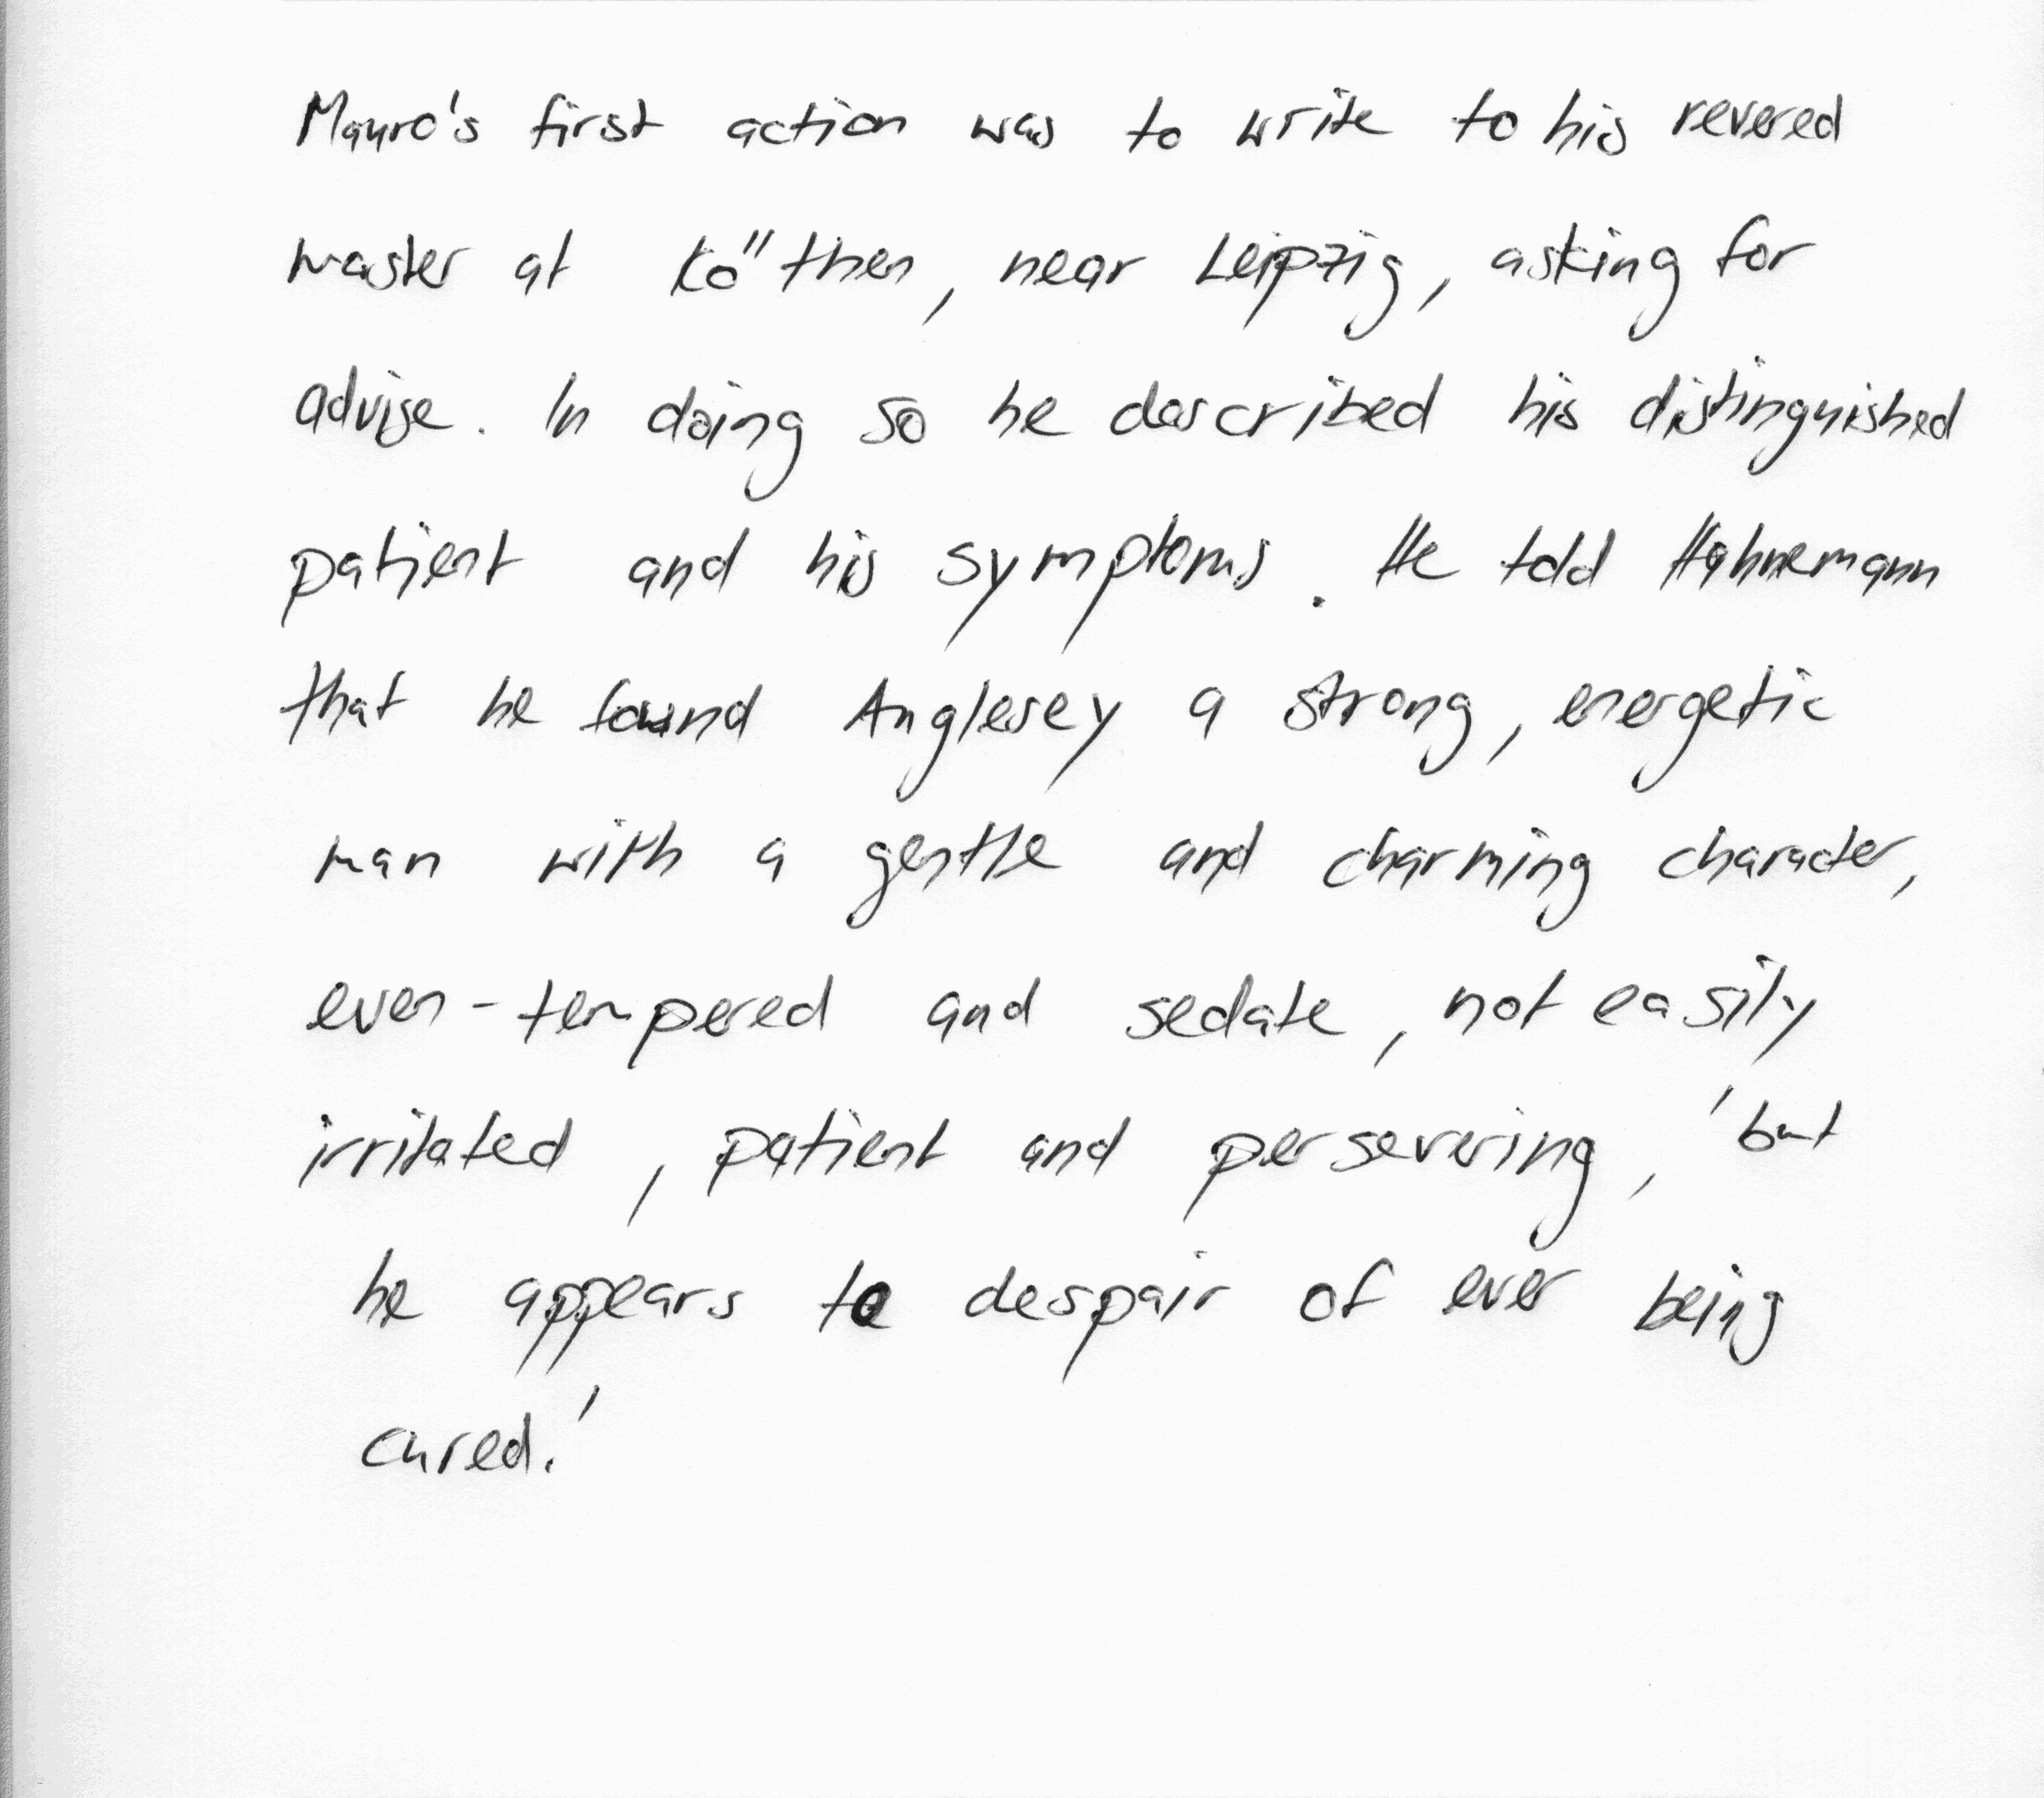 Mauro's first action was to write to his revered
master at Kö"then, near Leipzig, asking for
advise. In doing so he described his distinguished
patient and his symptoms. He told Hahnemann
that he found Anglesey a strong, energetic
man with a gentle and charming character,
even-tempered and sedate, not easily
irritated, patient and persevering, 'but
he appears to despair of ever being
cured.'